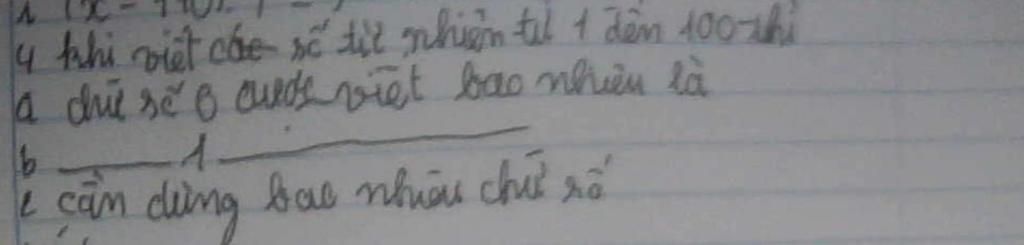 4 khi viết các số tự nhiên từ 1 đến 100 thì
a chữ số 0 được viết bao nhiêu là
b ——— 1 ———
c cần dùng bao nhiêu chữ số